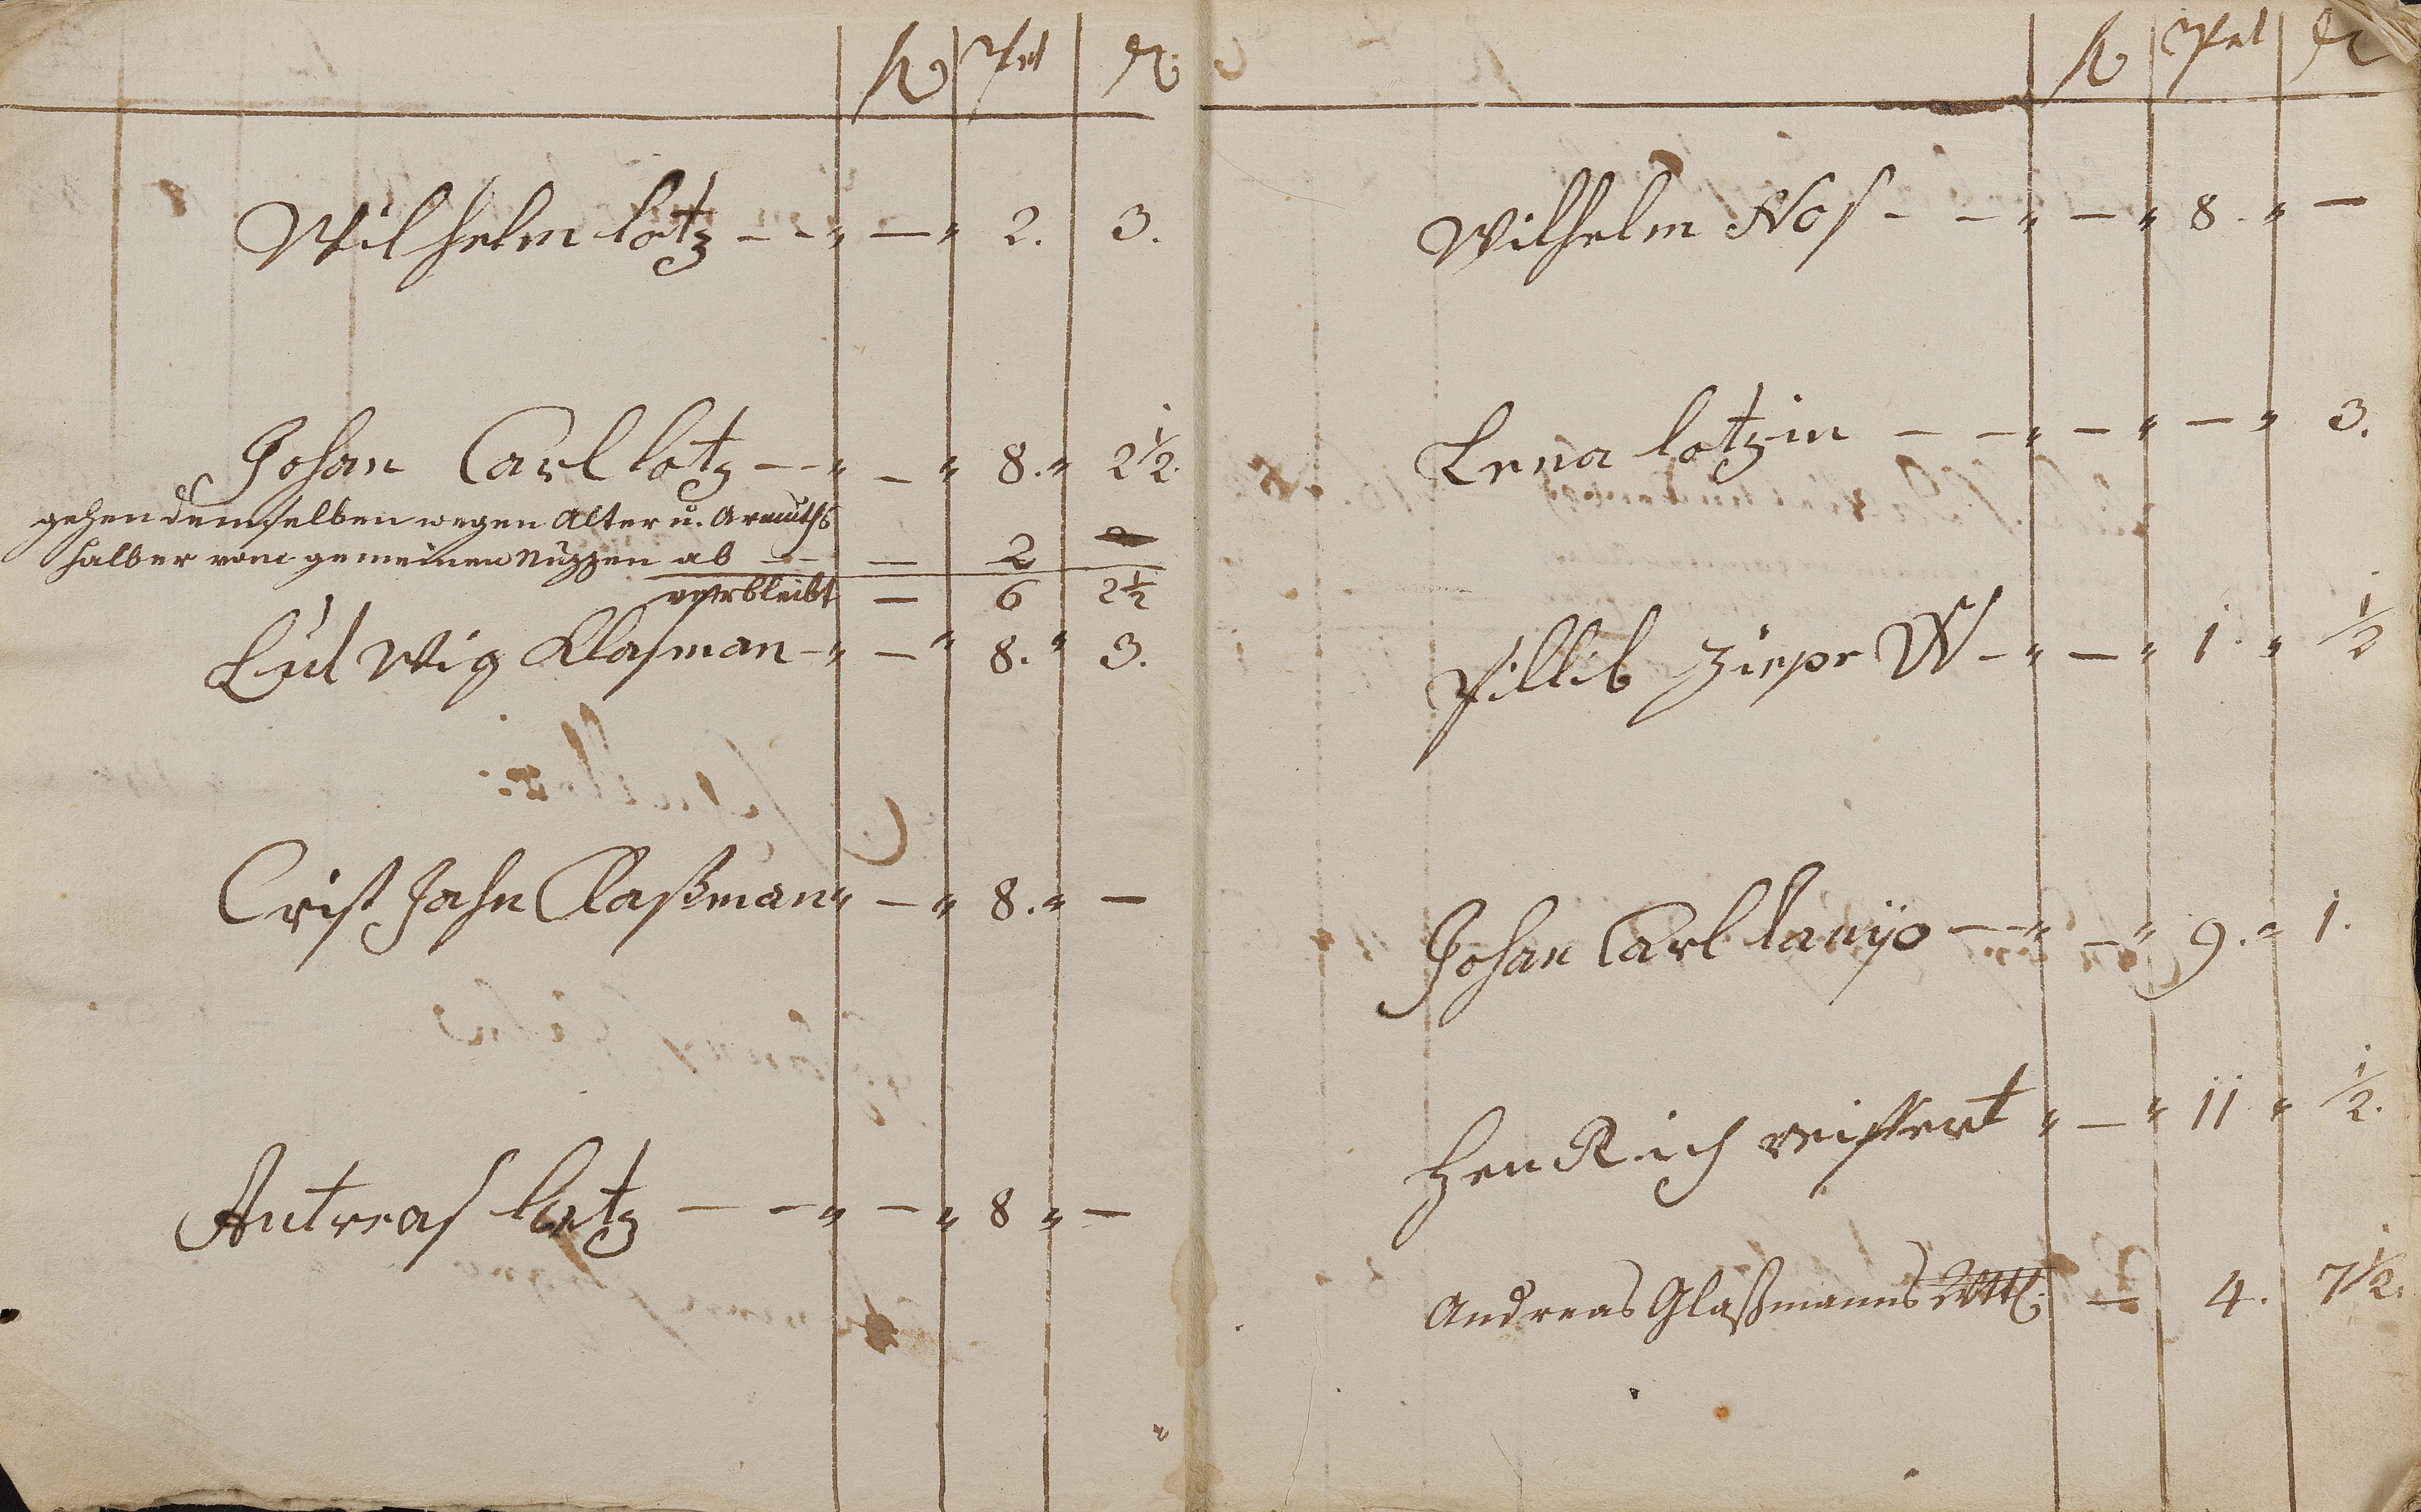 fl alb ₰
Wilhelm lotz – – " – " 2. 3.
Johan Carl lotz – – " – " 8. " 2½.
gehen demselben wegen Alter u. Armuths
halber vom gemeinen Nuzzen ab – – – 2
verbleibt – 6 2½
Lud Wig Klasman – " – " 8. " 3.
Crist Jahn Claßman " – " 8. " –
Antreas lotz – – " – " 8 " –
fl alb ₰
Wilhelm Nos – – " – " 8. " –
Lena lotzin – – " – " – " 3.
Fillib W – " – " 1. " ½
Johan Carl – – " – " 9. " 1.
HenRich reissert " – " 11 " ½.
Andreas Glaßmanns – 4. 7½.